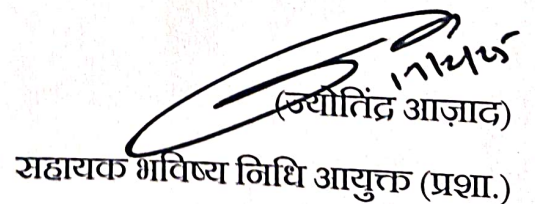 (ज्योतिंद्र आज़ाद)
सहायक भविष्य निधि आयुक्त (प्रशा.)